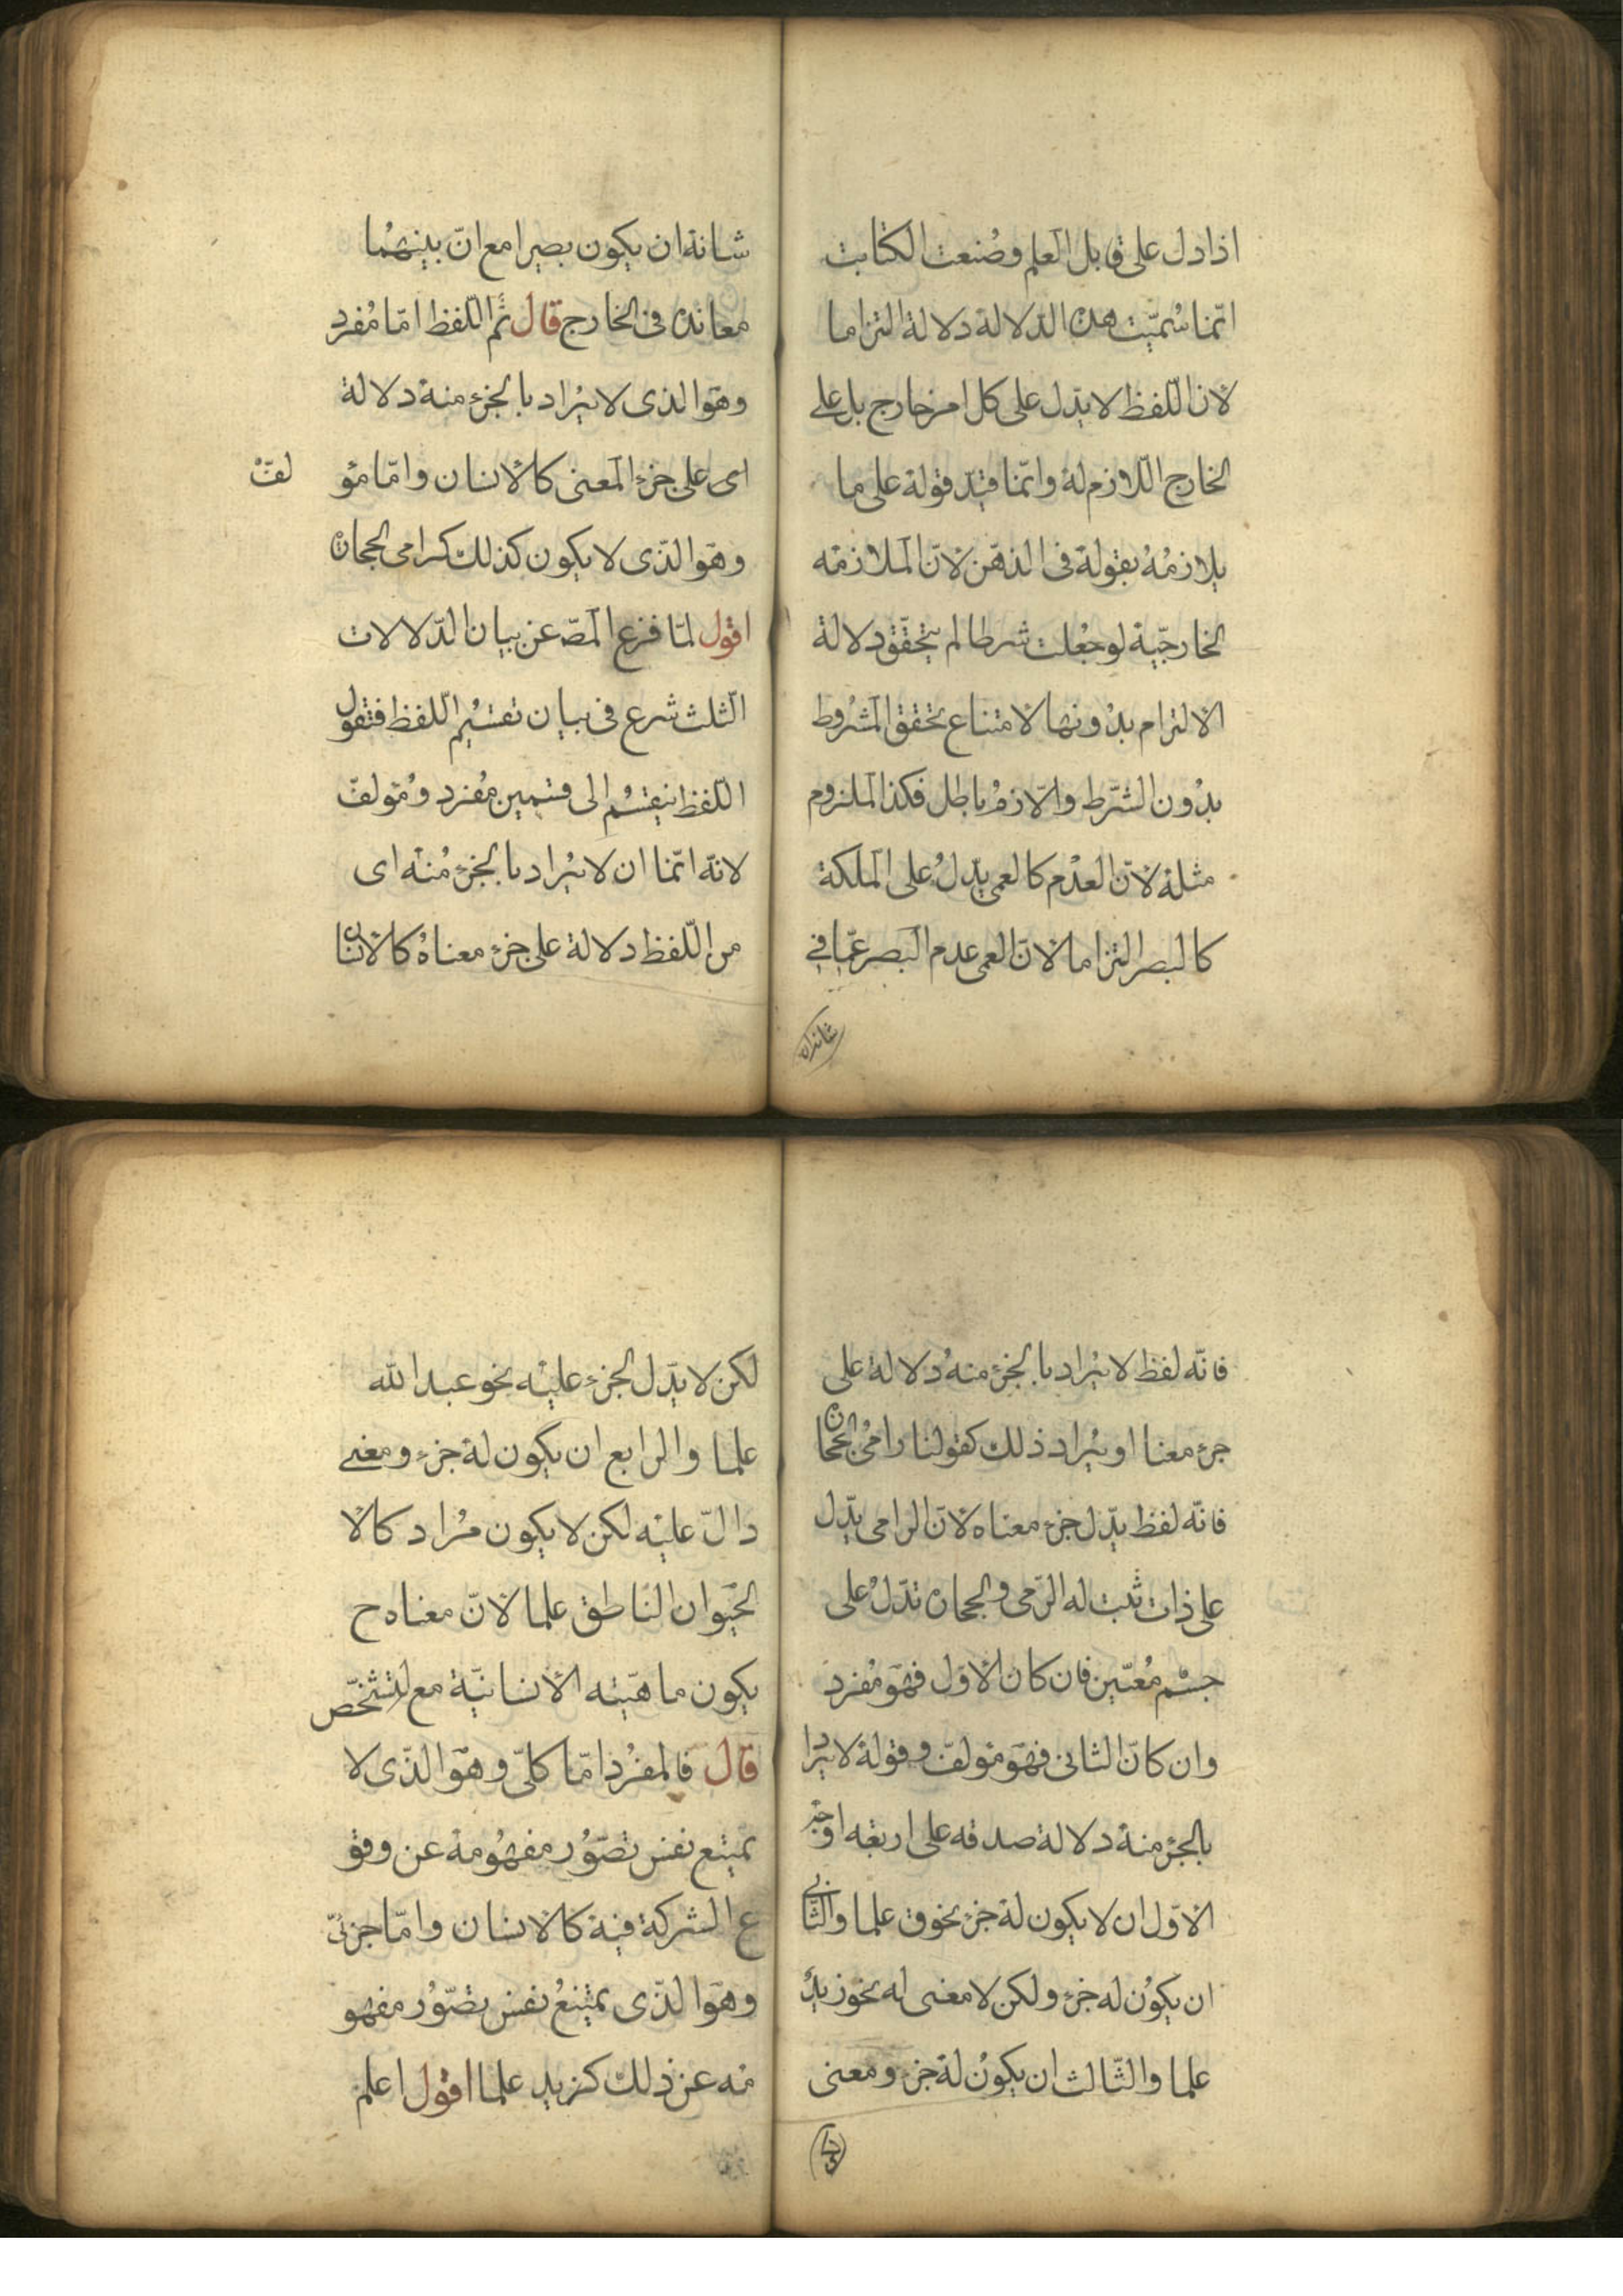 اذا دل على قابل العلم وصنعت الكتابت
انّما سُمّيت هذه الدّلالة دلالة التزاما
لانّ اللّفظ لا يدّل على كل امر خارج بل على
الخارج اللّازم له وانّما قيّد قوله على ما
يلازمُهُ بقوله فى الذهن لانّ الملازمه
الخارجيّة لو جُعلت شرطا لم يتحقّق دلالة
الالتزام بدُونها لامتناع تحقق المشرُوط
بدُون الشّرط والّازمُ باطل فكذا الملزوم
مثله لانّ العدْم كالعمى يدّلُ على الملكة
كالبصر التزاما لانّ العمى عدم البصر عمّا فى
شانه ان
شانه ان يكون بصيرا مع انّ بينهُما
معانده فى الخارج قال ثُم اللّفظ امّا مُفرد
وهو الذى لا يُراد بالجزء منه دلالة
اى على جزء المعنى كالانسان وامّا مؤ
لفّ
وهو الّذى لا يكون كذلك كرامى الحجاره
اقول لمّا فرغ المصّ عن بيان الدّلالات
الّثلث شرع فى بيان تقسُيم اللّفظ فتقول
اللّفظ ينقسُم الى قسمين مُفرد ومُؤلفّ
لانّه امّا ان لا يُراد بالجزء مُنه اى
من اللّفظ دلالة على جزء معناهُ كالانسان
فانّه لفظ لا يُراد بالجزء منهُ دلالة على
جزء معنا او يُراد ذلك كقولنا رامى الحجاره
فانّه لفظ يدّل جزء معناه لانّ الرامى يدّل
على ذات ثبت له الرّمى والحجاره تدّلُ على
جسْم مُعيّن فان كان الاوّل فهو مُفرد
وان كانّ الثانى فهو مؤلفّ وقوله لا يُراد
بالجزء منه دلالة صدقه على اربعه اوجه
الاوّل ان لا يكون له جزء نحو ق علما والثّانى
ان يكوُن له جزء ولكن لا معنى له نحو زيدُ
علما والثّالث ان يكوُن له جزء ومعنى
لكن
لكن لا يدّل الجزء عليْه نحو عبد الله
علما والرابع ان يكون له جزء ومعنى
دالّ عليْه لكن لا يكون مُراد كالا
الحيوان النّاطق علما لانّ معناه ح
يكون ماهيّته الانسانيّة مع التشخّص
قال فالمفرُد امّا كلّى وهو الّذى لا
يمتنع نفس تصّوُر مفهُومه عن وقو
ع الشركة فيه كالانسان وامّا جزئىّ
وهو الّذى يمتنعُ نفس تصّوُر مفهو
مه عن ذلك كزيد علما اقول اعلم